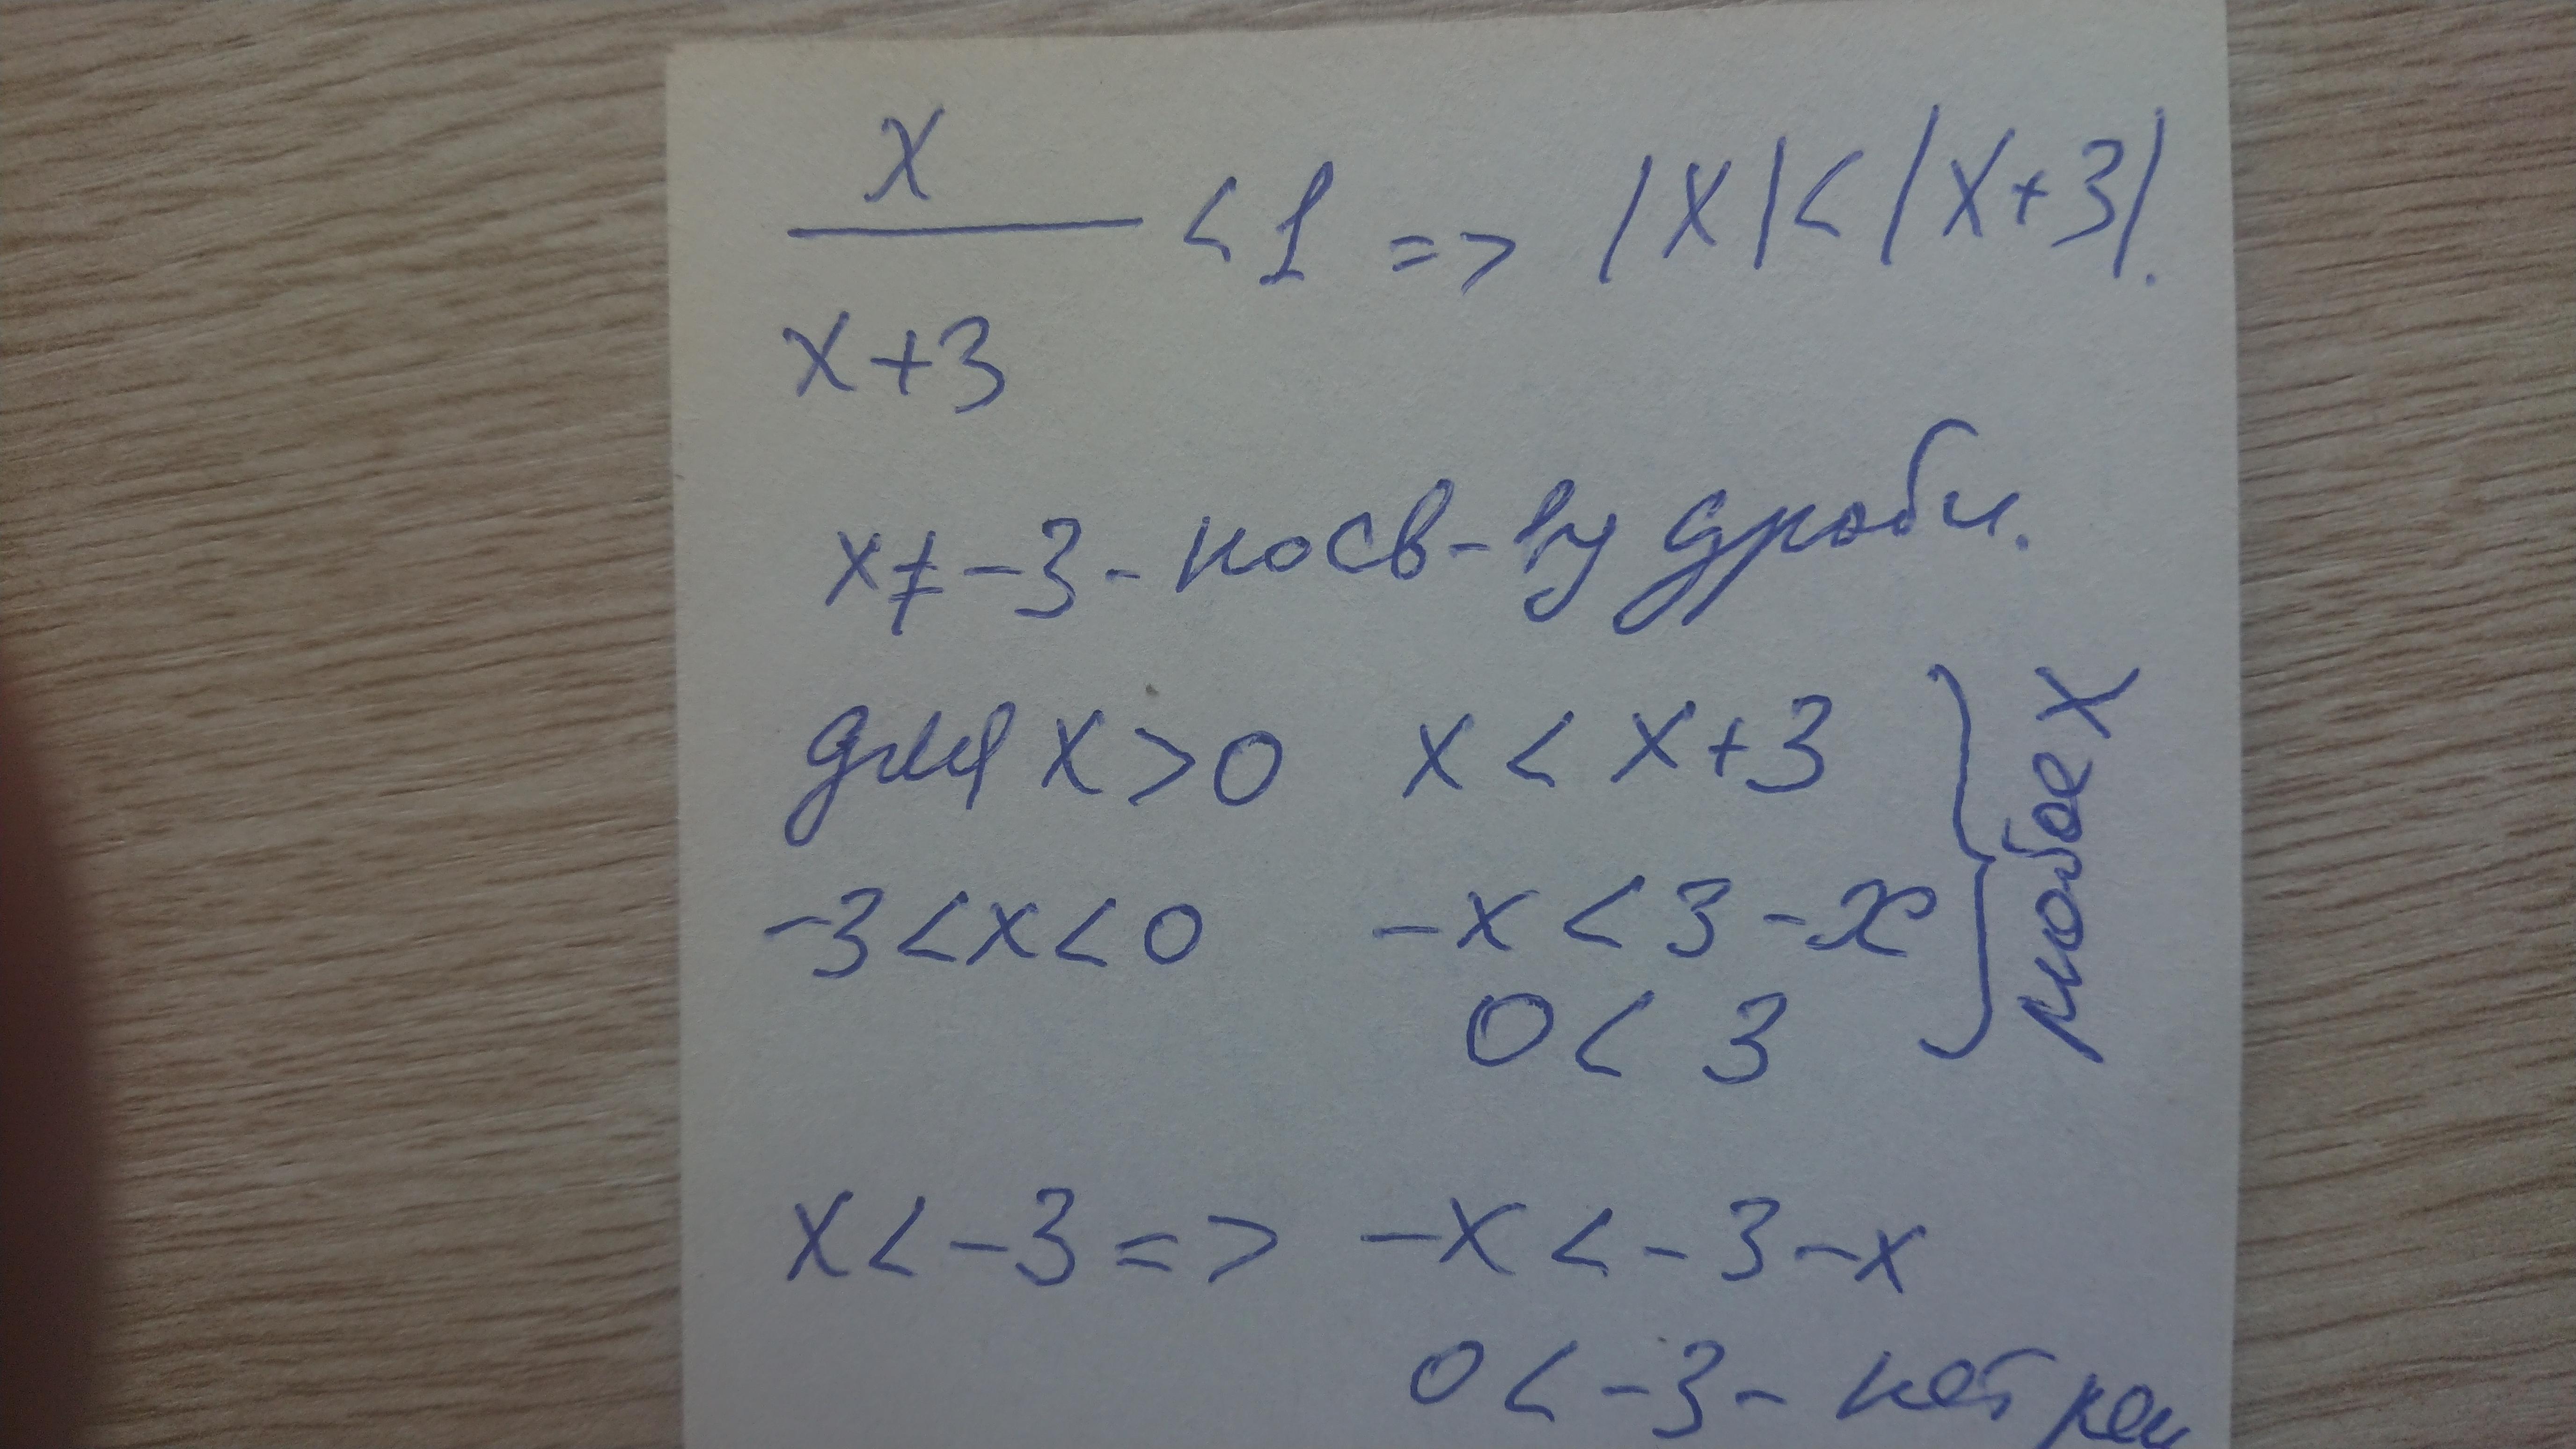 x
——— < 1 => |x| < |x+3|.
x+3
x ≠ -3 - по св-ву дроби.
для x > 0 x < x+3
-3 < x < 0 -x < 3 - x
0 < 3
любое x
x < -3 => -x < -3 - x
0 < -3 - нет реш